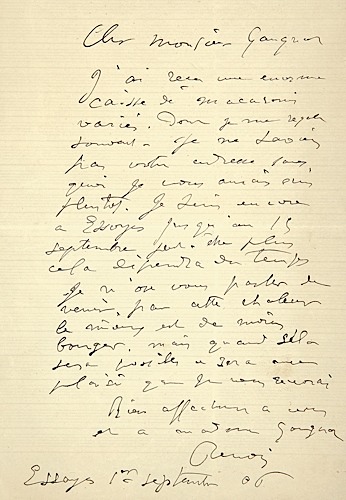 Cher Monsieur Gangnat
J'ai reçu une enorme
caisse de macarons
variés. Dont je me regale
souvent. Je ne savais
pas votre adresse sans
quoi je vous aurais ecrit
plutot. Je suis encore
a Essoyes jusqu'au 15
septembre peut-etre plus
cela dépendra du temps
Je n'ose vous parler de
venir, par cette chaleur
le mieux est de moins
bouger. mais quand cela
sera possible ce sera avec
plaisir que je vous reverrai
Bien affectueux a vous
et a madame Gangnat
Renoir
Essoyes 1er septembre 06